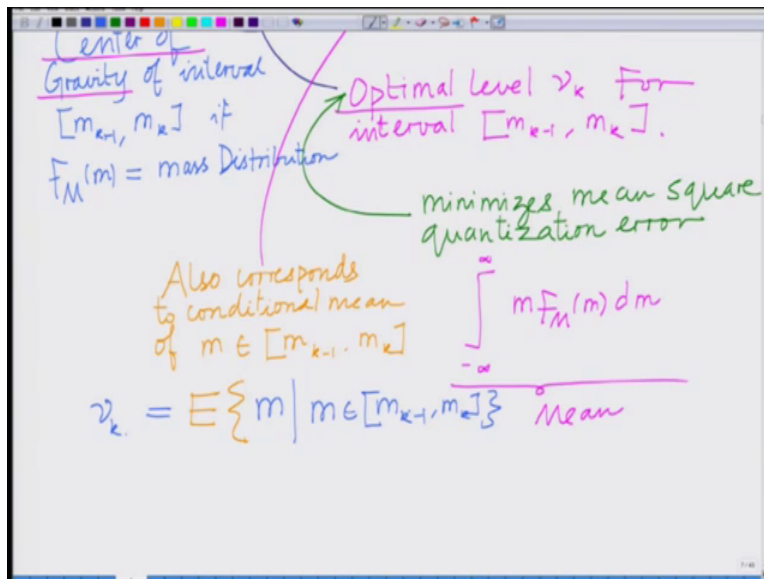 Center of
Gravity of interval
[m_{k-1}, m_k] if
F_M(m) = mass Distribution
Optimal level v_k For
interval [m_{k-1}, m_k].
minimizes mean square
quantization error
Also corresponds
to conditional mean
of m ∈ [m_{k-1}, m_k]
∫_{-∞}^{∞} m F_M(m) dm
Mean
v_k = E{m | m ∈ [m_{k-1}, m_k]}